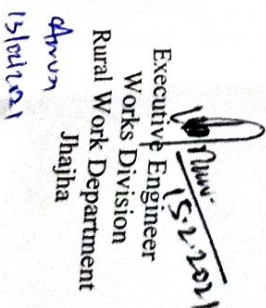 15.2.2021
Executive Engineer
Works Division
Rural Work Department
Jhajha
15/02/2021